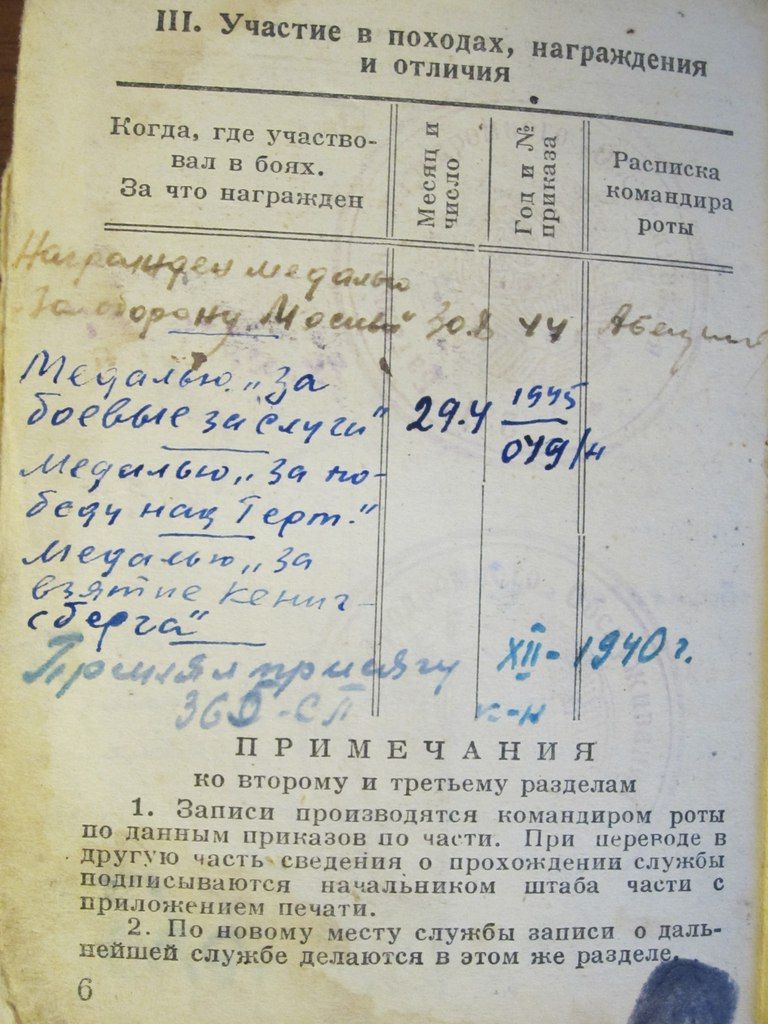 III. Участие в походах, награждения
и отличия
Когда, где участво-
вал в боях.
За что награжден
Месяц и
число
Год и №
приказа
Расписка
командира
роты
Награжден медалью
"За оборону Москвы" 30.8 44
Медалью „За
боевые заслуги" 29.4 1945
049/н
Медалью „За по-
беду над Герм."
Медалью „За
взятие Кениг-
сберга"
Принял присягу XII - 1940 г.
365-СП к-н
ПРИМЕЧАНИЯ
ко второму и третьему разделам
1. Записи производятся командиром роты
по данным приказов по части. При переводе в
другую часть сведения о прохождении службы
подписываются начальником штаба части с
приложением печати.
2. По новому месту службы записи о даль-
нейшей службе делаются в этом же разделе.
6